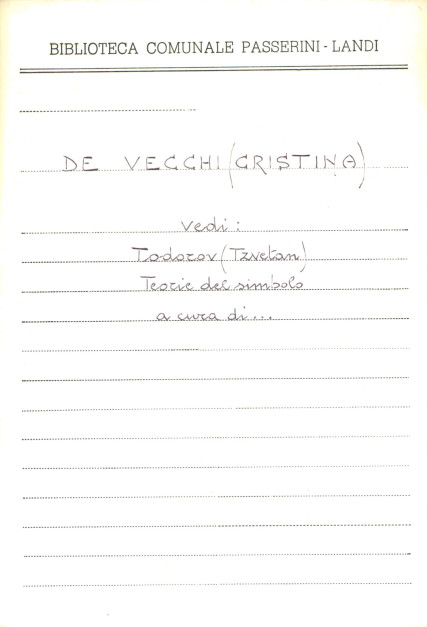 BIBLIOTECA COMUNALE PASSERINI - LANDI
DE VECCHI (CRISTINA)
vedi:
Todorov (Tzvetan)
Teorie del simbolo
a cura di...